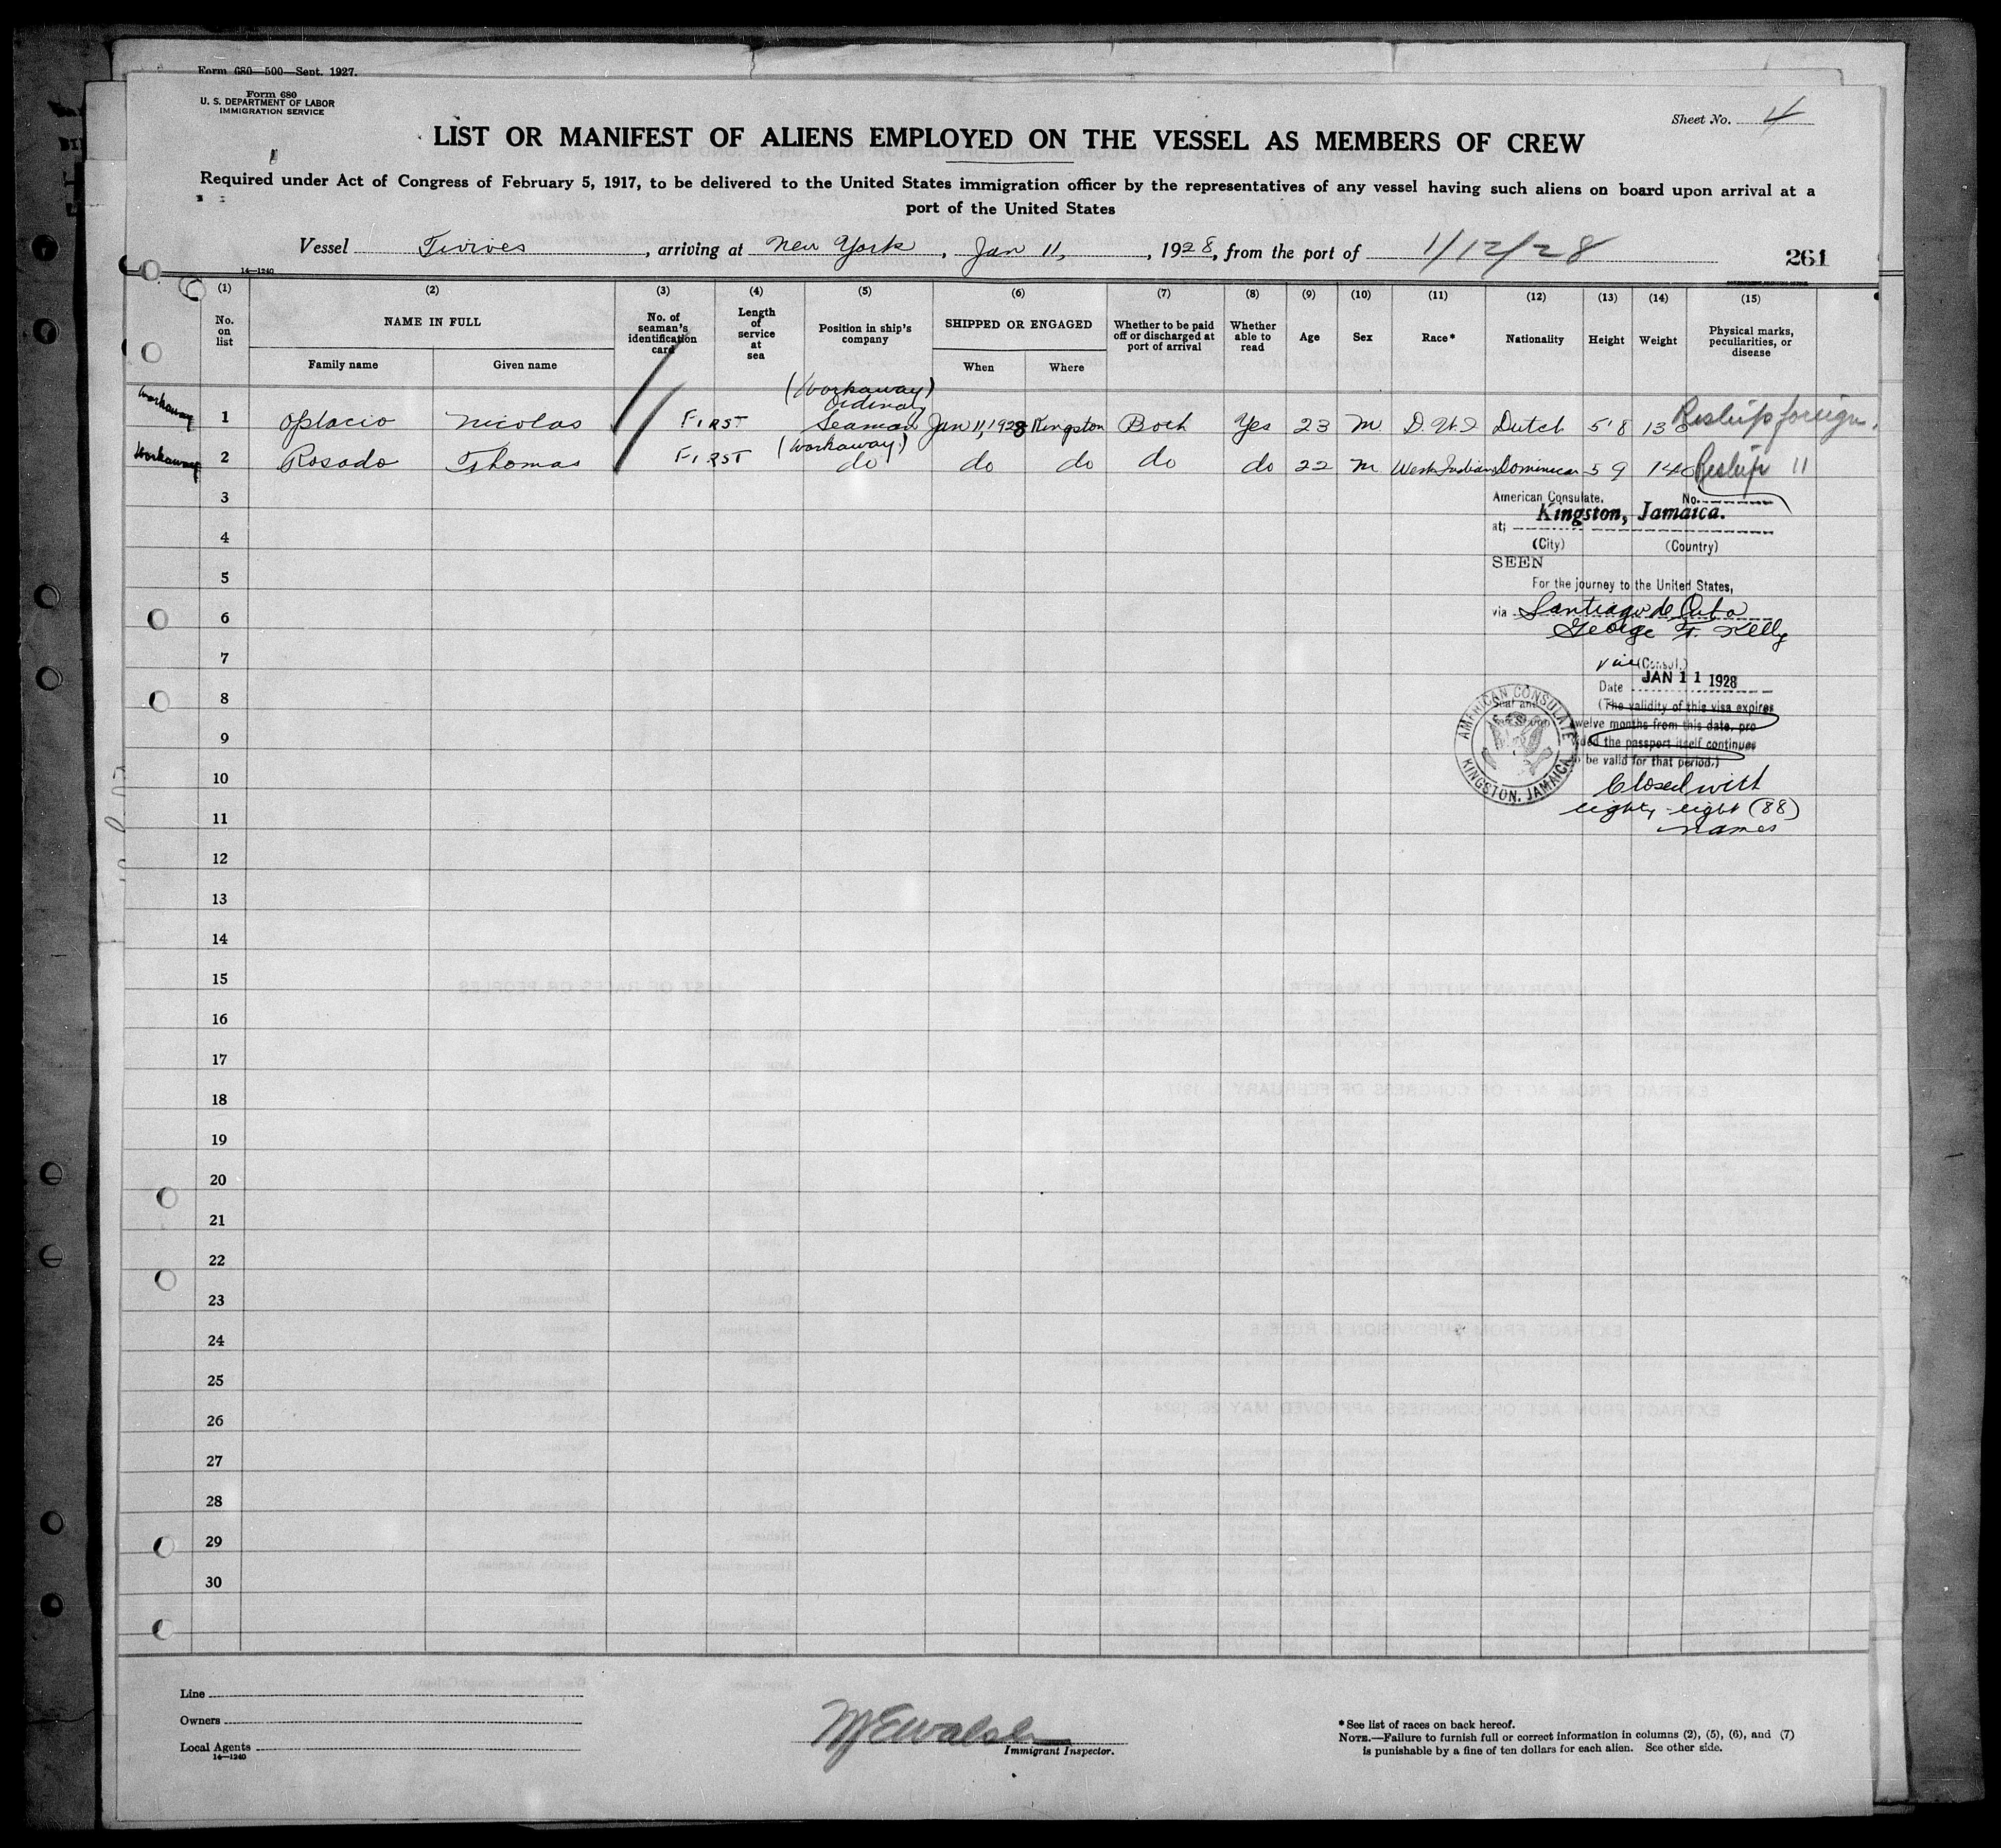 Form 680—500—Sept. 1927.
Form 680
U. S. DEPARTMENT OF LABOR
IMMIGRATION SERVICE
Sheet No. 4
LIST OR MANIFEST OF ALIENS EMPLOYED ON THE VESSEL AS MEMBERS OF CREW
Required under Act of Congress of February 5, 1917, to be delivered to the United States immigration officer by the representatives of any vessel having such aliens on board upon arrival at a
port of the United States
Vessel Tivives, arriving at New York, Jan 11, 1928, from the port of 1/12/28
261
14—1240
(1) (2) (3) (4) (5) (6) (7) (8) (9) (10) (11) (12) (13) (14) (15)
No. on list
NAME IN FULL
Family name Given name
No. of seaman's identification card
Length of service at sea
Position in ship's company
SHIPPED OR ENGAGED
When Where
Whether to be paid off or discharged at port of arrival
Whether able to read
Age
Sex
Race*
Nationality
Height
Weight
Physical marks, peculiarities, or disease
(Workaway)
Workaway 1 Oplacio Nicolas FIRST Ordinary Seaman Jan 11, 1928 Kingston Both Yes 23 M D.W.I Dutch 5'8 Reship foreign.
(Workaway)
Workaway 2 Rosado Thomas FIRST do do do do do 22 M West Indian Dominican 5 9 140 Reship 11
3
4
5
6
7
8
9
10
11
12
13
14
15
16
17
18
19
20
21
22
23
24
25
26
27
28
29
30
American Consulate, No.
at; Kingston, Jamaica.
(City) (Country)
SEEN
For the journey to the United States,
via Santiago de Cuba
George F. Kelly
Vice (Consul.)
Date JAN 11 1928
(The validity of this visa expires
twelve months from this date, pro
vided the passport itself continues
to be valid for that period.)
AMERICAN CONSULATE
KINGSTON, JAMAICA
Closed with
eighty-eight (88)
names
Line
Owners
Local Agents
14—1240
Immigrant Inspector.
*See list of races on back hereof.
NOTE.—Failure to furnish full or correct information in columns (2), (5), (6), and (7)
is punishable by a fine of ten dollars for each alien. See other side.